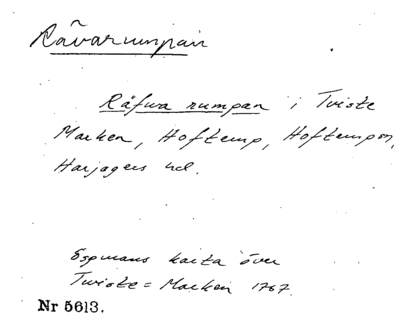 Rävarumpan
Räfwa rumpan i Twiste
Marken, Hoftemp, Hoftempsn,
Harjagers hd.
Espmans karta över
Twiste=Marken 1767.
Nr 5613.